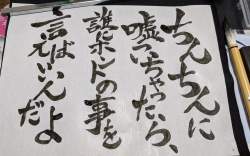 ちんちんに
嘘ついちゃったら、
誰にホントの事を
言えばいいんだよ